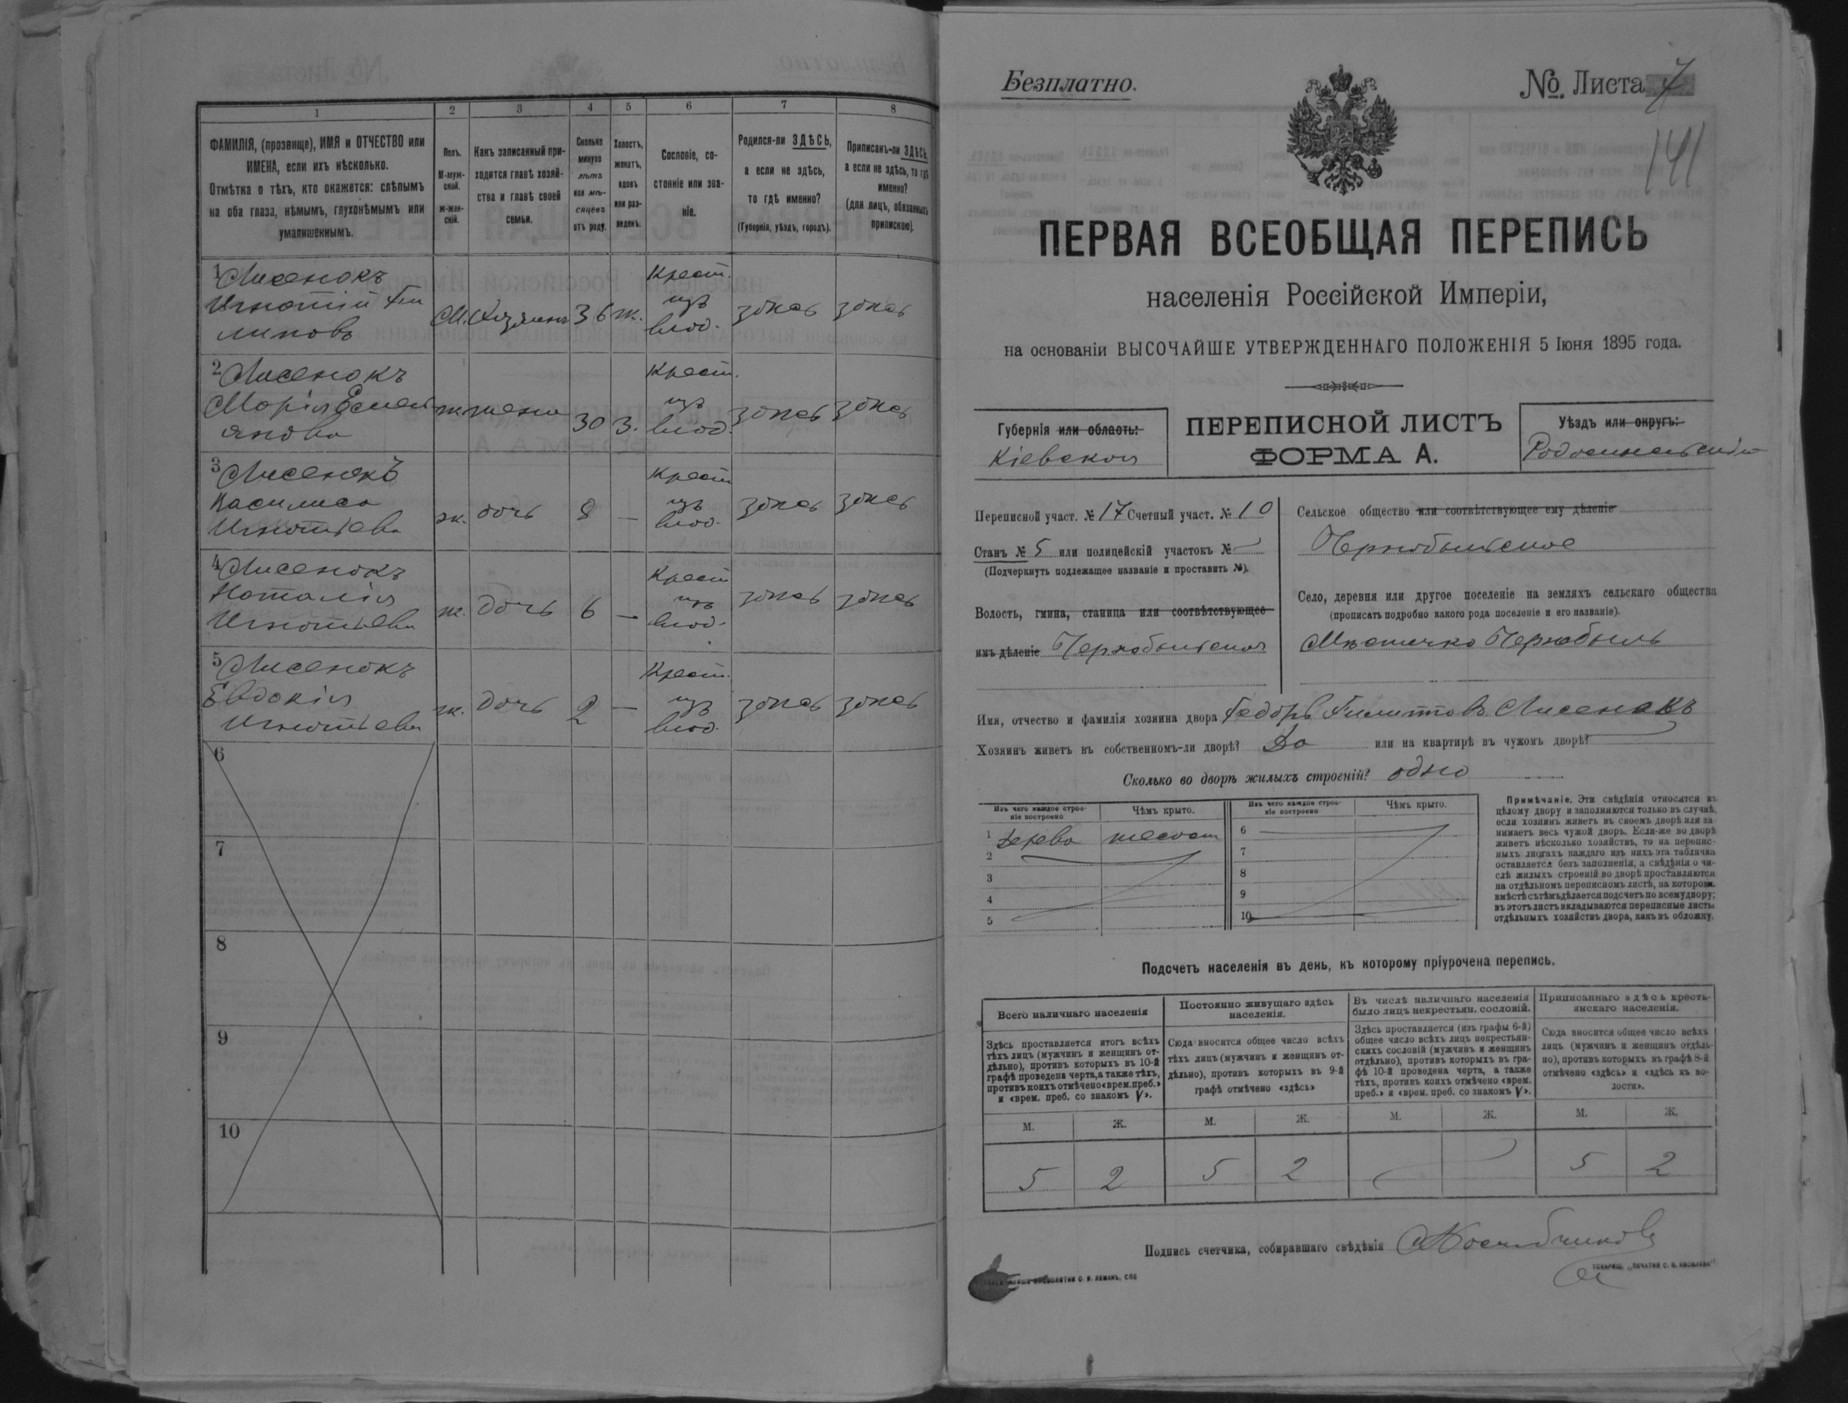 1
2
3
4
5
6
7
8
ФАМИЛІЯ, (прозвище), ИМЯ и ОТЧЕСТВО или
ИМЕНА, если ихъ нѣсколько.
Отмѣтка о тѣхъ, кто окажется: слѣпымъ
на оба глаза, нѣмымъ, глухонѣмымъ или
умалишеннымъ.
Полъ.
М-муж-
ской.
ж-жен-
скій.
Какъ записанный при-
ходится главѣ хозяй-
ства и главѣ своей
семьи.
Сколько
минуло
лѣтъ
или мѣ-
сяцевъ
отъ роду.
Холостъ,
женатъ,
вдовъ
или раз-
веденъ.
Сословіе, со-
стояніе или зва-
ніе.
Родился-ли ЗДѢСЬ,
а если не здѣсь,
то гдѣ именно?
(Губернія, уѣздъ, городъ).
Приписанъ-ли ЗДѢСЬ,
а если не здѣсь, то гдѣ
именно?
(для лицъ, обязанныхъ
припискою).
1 Лисенокъ
Игнатій Фи
липовъ
М. Хозяинъ 36 ж.
Крест.
изъ
влад.
здѣсь здѣсь
2 Лисенокъ
Марія Емель
янова
ж. жена 30 З.
Крест.
изъ
влад.
здѣсь здѣсь
3 Лисенокъ
Василиса
Игнатьева
ж. дочь 8 —
Крест
изъ
влад.
здѣсь здѣсь
4 Лисенокъ
Наталія
Игнатьева
ж. дочь 6 —
Крест
изъ
влад.
здѣсь здѣсь
5 Лисенокъ
Евдокія
Игнатьева
ж. дочь 2 —
Крест.
изъ
влад.
здѣсь здѣсь
6
7
8
9
10
Безплатно.
№ Листа 7
141
ПЕРВАЯ ВСЕОБЩАЯ ПЕРЕПИСЬ
населенія Россійской Имперіи,
на основаніи ВЫСОЧАЙШЕ УТВЕРЖДЕННАГО ПОЛОЖЕНІЯ 5 Іюня 1895 года.
Губернія или область:
Кіевская
ПЕРЕПИСНОЙ ЛИСТЪ
ФОРМА А.
Уѣздъ или округъ:
Переписной участ. № 17 Счетный участ. № 10
Станъ № 5 или полицейскій участокъ №
(Подчеркнуть подлежащее названіе и проставить №).
Волость, гмина, станица или соотвѣтствующее
имъ дѣленіе Чернобыльская
Сельское общество или соотвѣтствующее ему дѣленіе
Чернобыльское
Село, деревня или другое поселеніе на земляхъ сельскаго общества
(прописать подробно какого рода поселеніе и его названіе).
Мѣстечко Чернобыль
Имя, отчество и фамилія хозяина двора Федоръ Филипповъ Лисенокъ
Хозяинъ живетъ въ собственномъ-ли дворѣ? Да или на квартирѣ въ чужомъ дворѣ?
Сколько во дворѣ жилыхъ строеній? одно
Изъ чего каждое строе-
ніе построено
Чѣмъ крыто.
Изъ чего каждое строе-
ніе построено
Чѣмъ крыто.
1 Дерева тесом
2
3
4
5
6
7
8
9
10
Примѣчаніе. Эти свѣдѣнія относятся къ
цѣлому двору и заполняются только въ случаѣ,
если хозяинъ живетъ въ своемъ дворѣ или за-
нимаетъ весь чужой дворъ. Если-же во дворѣ
живетъ нѣсколько хозяйствъ, то на перепис-
ныхъ листахъ каждаго изъ нихъ эта табличка
оставляется безъ заполненія, а свѣдѣнія о чи-
слѣ жилыхъ строеній во дворѣ проставляются
на отдѣльномъ переписномъ листѣ, на которомъ
вмѣстѣ съ тѣмъ дѣлается подсчетъ по всему двору;
въ этотъ листъ вкладываются переписные листы
отдѣльныхъ хозяйствъ двора, какъ въ обложку.
Подсчетъ населенія въ день, къ которому пріурочена перепись.
Всего наличнаго населенія
Здѣсь проставляется итогъ всѣхъ
тѣхъ лицъ (мужчинъ и женщинъ от-
дѣльно), противъ которыхъ въ 10-й
графѣ проведена черта, а также тѣхъ,
противъ коихъ отмѣчено «врем. преб.»
и «врем. преб. со знакомъ V».
Постоянно живущаго здѣсь
населенія.
Сюда вносится общее число всѣхъ
тѣхъ лицъ (мужчинъ и женщинъ от-
дѣльно), противъ которыхъ въ 9-й
графѣ отмѣчено «здѣсь»
Въ числѣ наличнаго населенія
было лицъ некрестьян. сословій.
Здѣсь проставляется (изъ графы 6-й)
общее число всѣхъ лицъ некрестьян-
скихъ сословій (мужчинъ и женщинъ
отдѣльно), противъ которыхъ въ гра-
фѣ 10-й проведена черта, а также
тѣхъ, противъ коихъ отмѣчено «врем.
преб.» и «врем. преб. со знакомъ V».
Приписаннаго здѣсь кресть-
янскаго населенія.
Сюда вносится общее число всѣхъ
лицъ (мужчинъ и женщинъ отдѣль-
но), противъ которыхъ въ графѣ 8-й
отмѣчено «здѣсь» и «здѣсь къ во-
лости».
М. Ж. М. Ж. М. Ж. М. Ж.
5 2 5 2 5 2
Подпись счетчика, собиравшаго свѣдѣнія